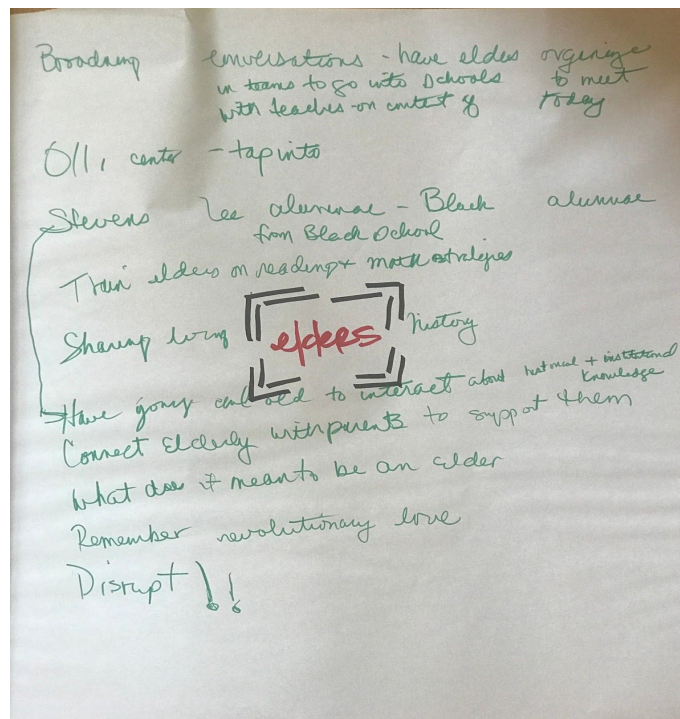 Broadning conversations - have elders organize
in teams to go into schools to meet
with teaches - on context of today
Olli center - tap into
Stevens Lee alumnae - Black alumnae
from Black School
Train elders on reading + math strategies
Sharing living history
elders
Have young and old to interact about + institutional
knowledge
Connect Elderly with parents to support them
What does it mean to be an elder
Remember revolutionary love
Disrupt!!